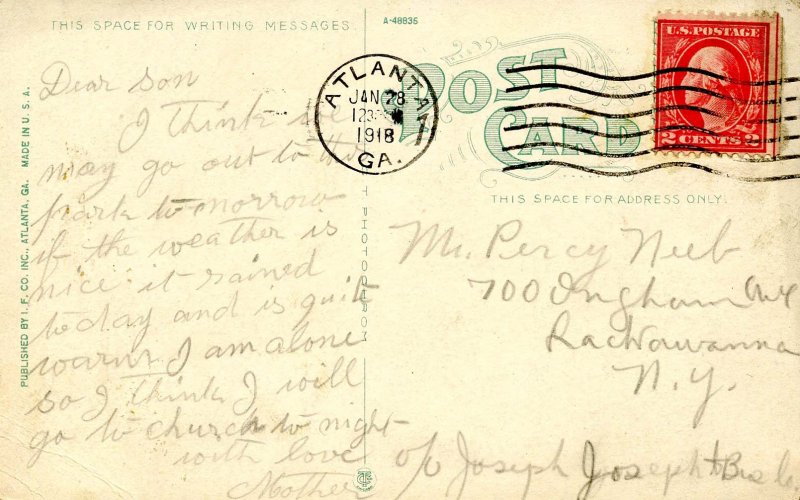 THIS SPACE FOR WRITING MESSAGES.
A-48835
POST
CARD
THIS SPACE FOR ADDRESS ONLY.
ATLANTA
JAN 28
1918
GA.
U.S. POSTAGE
2 CENTS 2
PUBLISHED BY I. F. CO. INC., ATLANTA, GA. MADE IN U. S. A.
Dear son
I think we
may go out to the
park to-morrow
if the weather is
nice it rained
to day and is quite
warm I am alone
so I think I will
go to church to night
with love
Mother
Mr. Percy Neeb
700 Ingham Ave
Lackawanna
N.Y.
c/o Joseph Joseph & Bros Co.